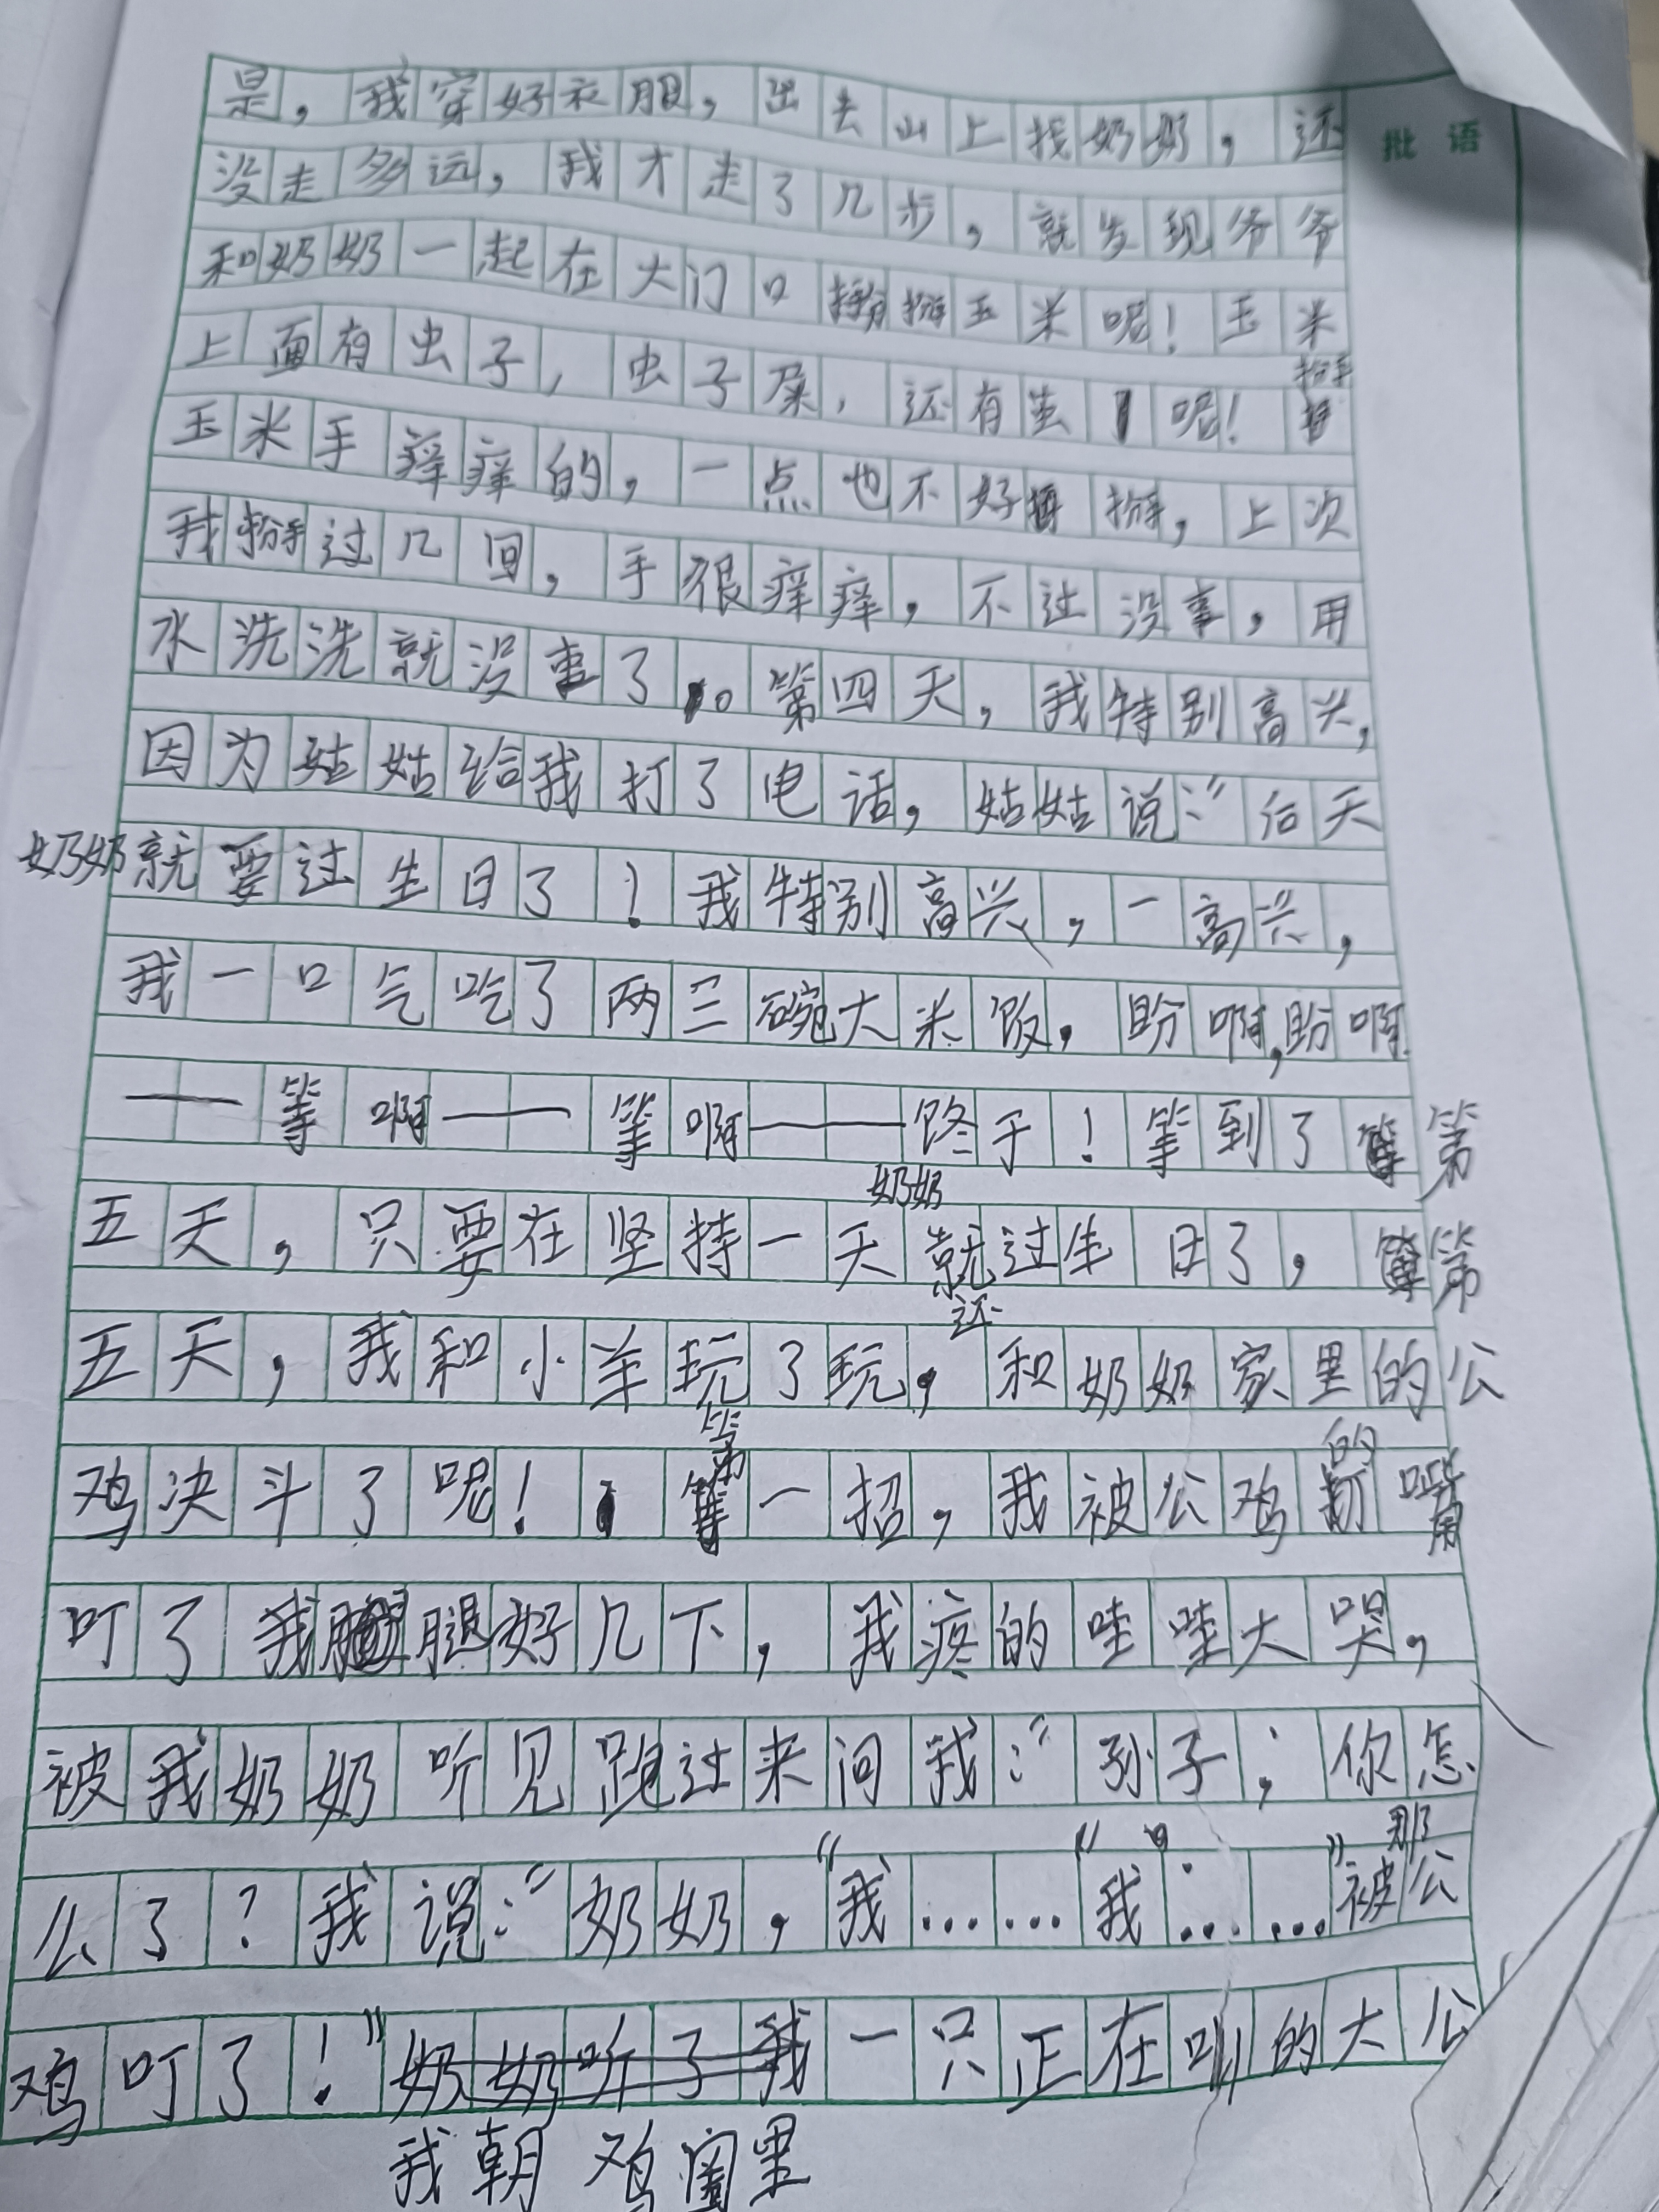 批语
是，我穿好衣服，出去山上找奶奶，还
没走多远，我才走了几步，就发现爷爷
和奶奶一起在大门口掰掰玉米呢！玉米
上面有虫子，虫子屎，还有虫呢！掰
玉米手痒痒的，一点也不好掰，上次
我掰过几回，手很痒痒，不过没事，用
水洗洗就没事了。第四天，我特别高兴，
因为姑姑给我打了电话，姑姑说：“后天
奶奶就要过生日了！我特别高兴，一高兴，
我一口气吃了两三碗大米饭，盼啊，盼啊
——等啊——等啊——终于！等到了第
五天，只要在坚持一天奶奶就过生日了，第
五天，我和小羊玩了玩，还和奶奶家里的公
鸡决斗了呢！第一招，我被公鸡的嘴
叮了我腿好几下，我疼的哇哇大哭，
被我奶奶听见跑过来问我：“孙子；你怎
么了？我说：“奶奶，“我……“我……”被那公
鸡叮了！”奶奶听了我一只正在叫的大公
我朝鸡圈里